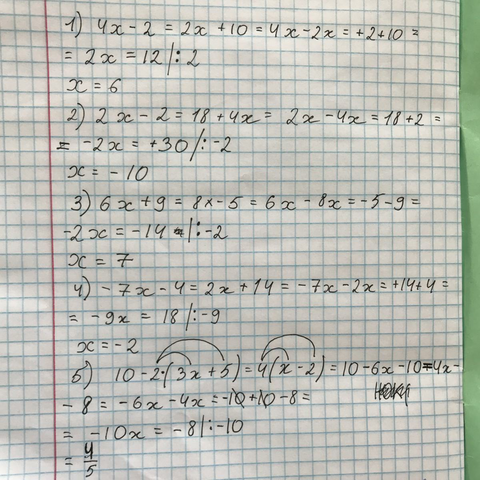 1) 4x - 2 = 2x + 10 = 4x - 2x = +2+10 =
= 2x = 12 |: 2
x = 6
2) 2x - 2 = 18 + 4x = 2x - 4x = 18 + 2 =
= -2x = +30 /: -2
x = - 10
3) 6x + 9 = 8x - 5 = 6x - 8x = -5 - 9 =
-2x = -14 |: -2
x = 7
4) - 7x - 4 = 2x + 14 = -7x - 2x = +14 + 4 =
= -9x = 18 |: -9
x = -2
5) 10 - 2·(3x + 5) = 4(x - 2) = 10 - 6x - 10 = 4x -
- 8 = -6x - 4x = -10 + 10 - 8 =
= -10x = -8 |: -10
= 4/5